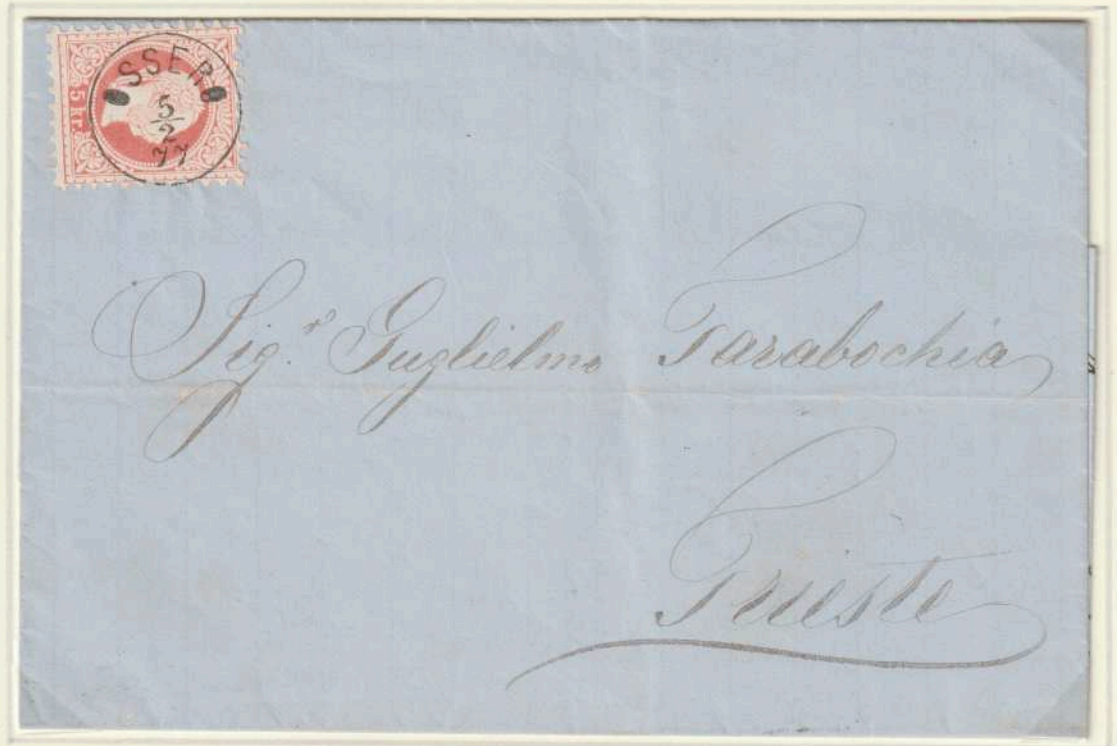 OSSERO
5
2
77
5 kr.
Sig.r Guglielmo Tarabochia
Trieste